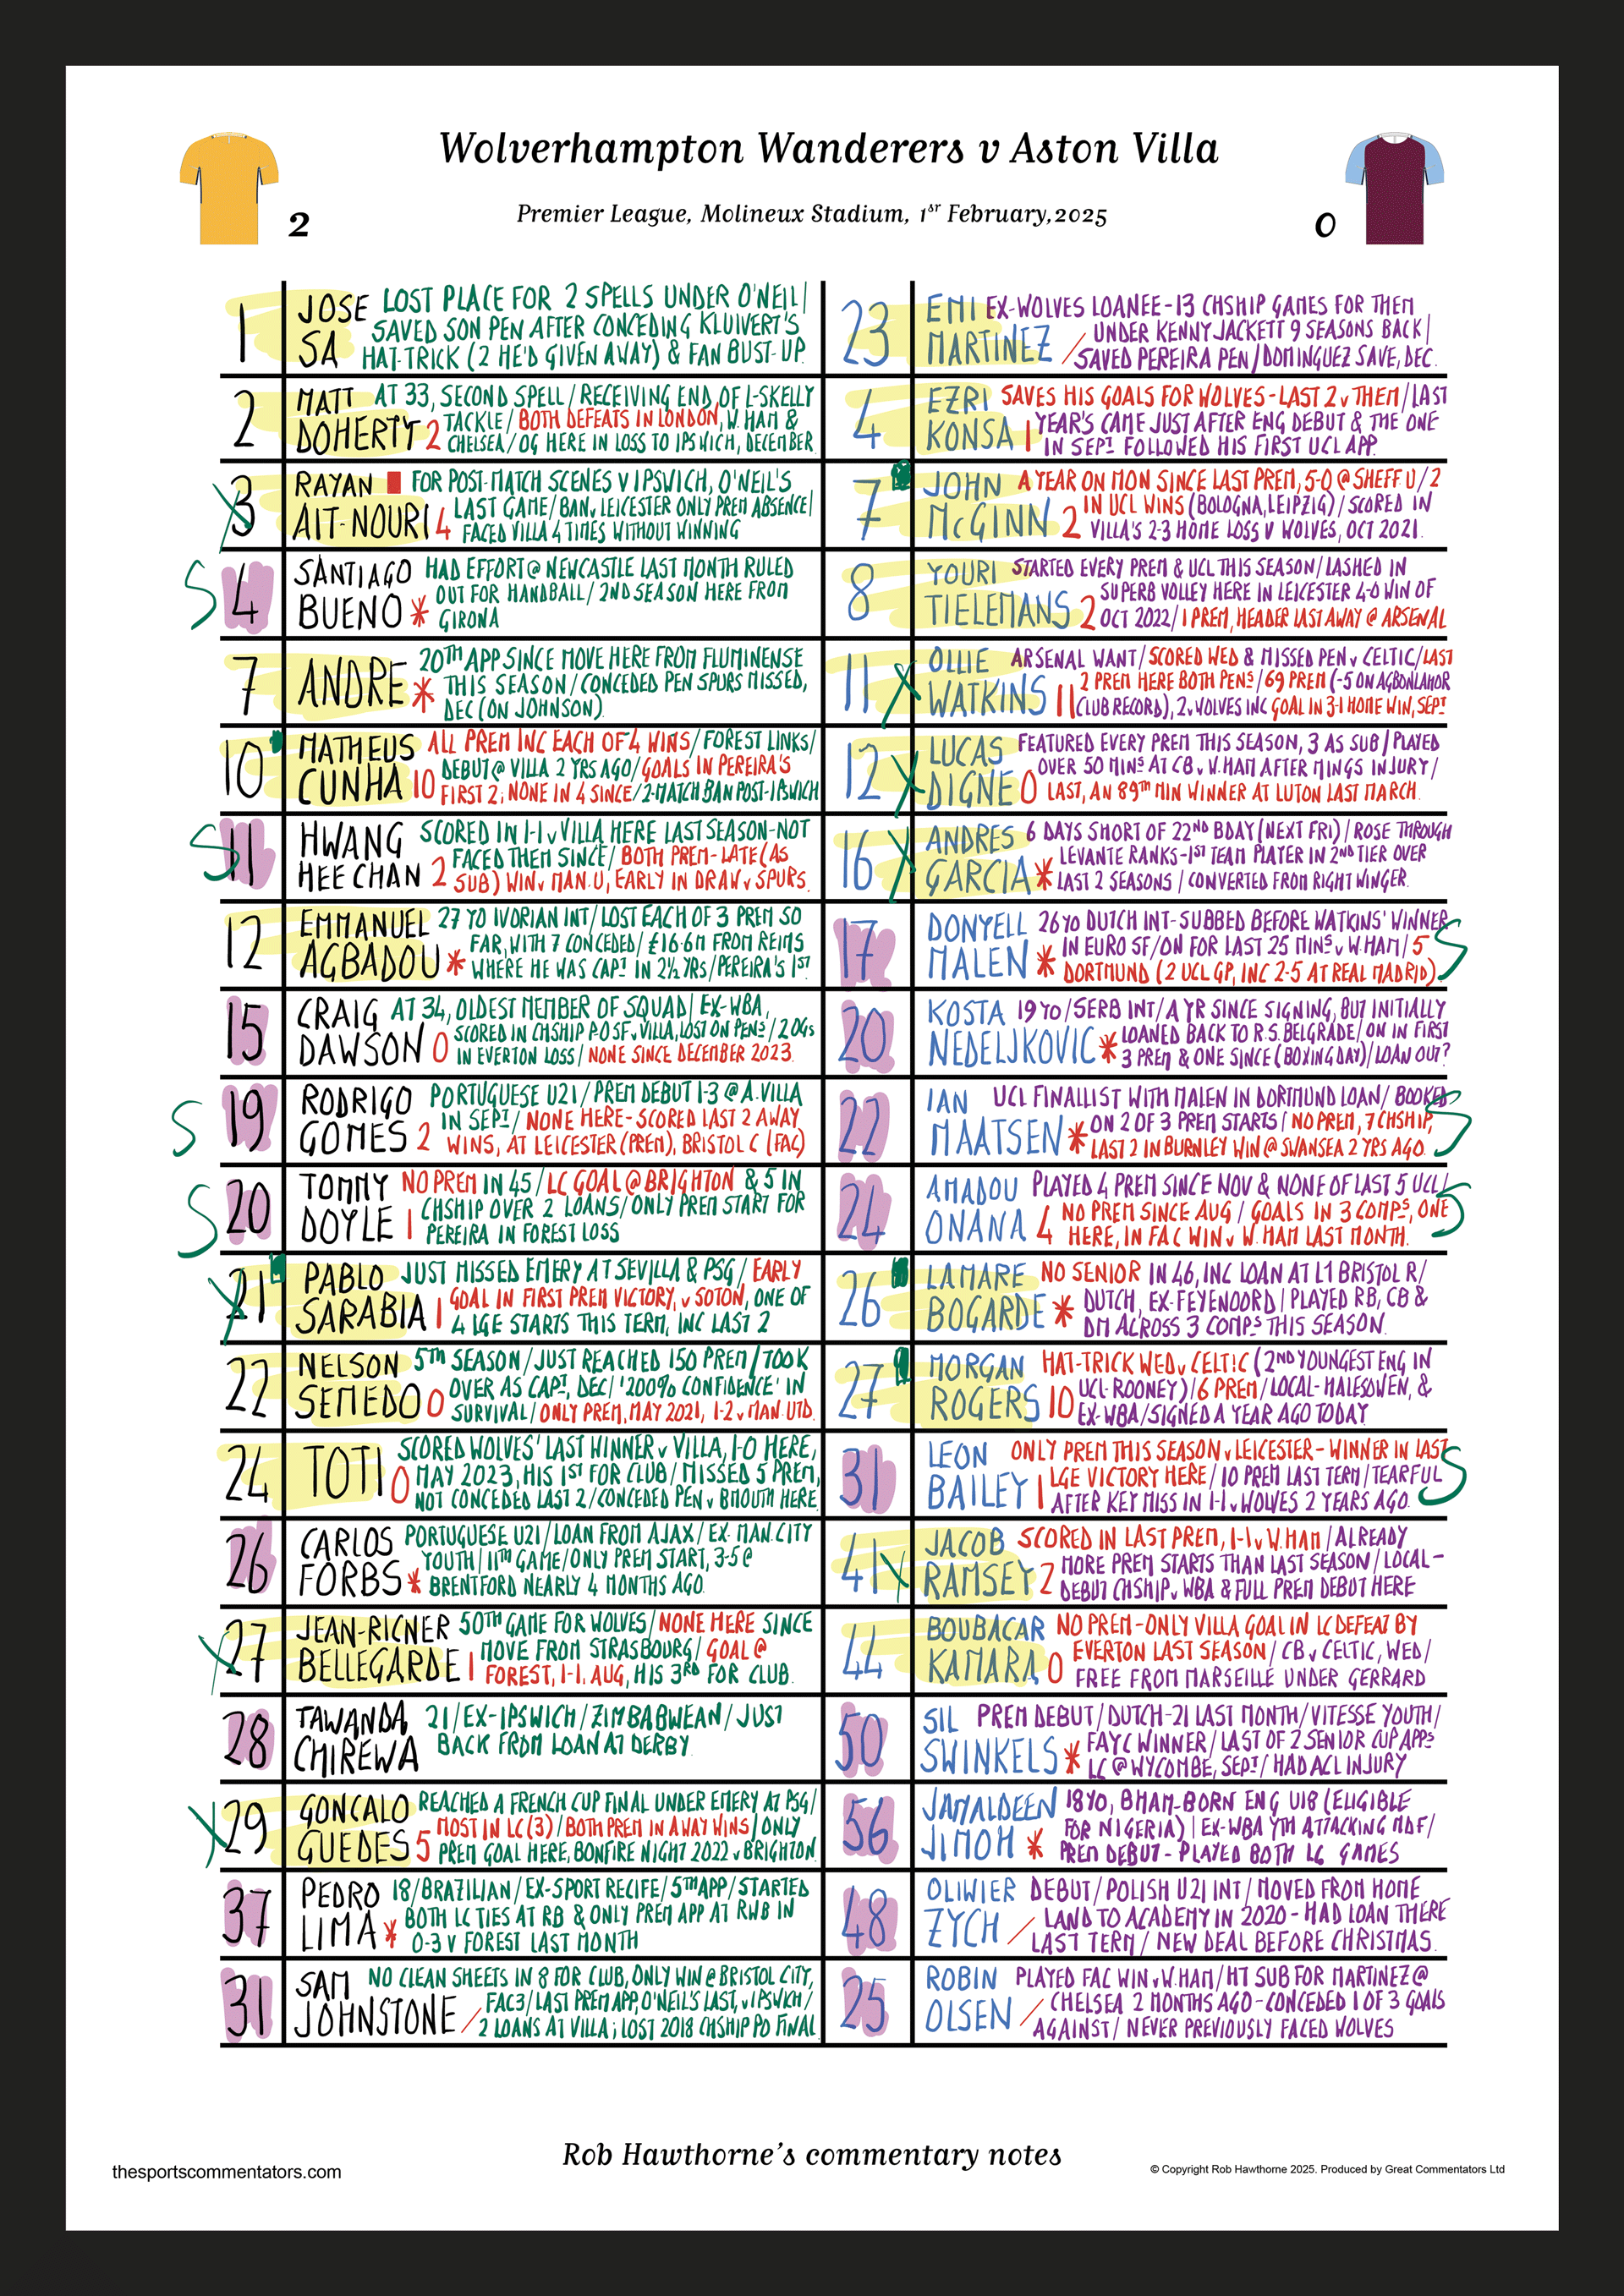 Wolverhampton Wanderers v Aston Villa
2
Premier League, Molineux Stadium, 1st February, 2025
0
1
JOSE SA
LOST PLACE FOR 2 SPELLS UNDER O'NEIL/
SAVED SON PEN AFTER CONCEDING KLUIVERT'S
HAT-TRICK (2 HE'D GIVEN AWAY) & FAN BUST-UP.
2
MATT DOHERTY 2
AT 33, SECOND SPELL/RECEIVING END OF L-SKELLY
TACKLE/BOTH DEFEATS IN LONDON, W. HAM &
CHELSEA/OG HERE IN LOSS TO IPSWICH, DECEMBER
X
3
RAYAN AIT-NOURI 4
FOR POST-MATCH SCENES V IPSWICH, O'NEIL'S
LAST GAME/BAN v LEICESTER ONLY PREM ABSENCE/
FACED VILLA 4 TIMES WITHOUT WINNING
S
4
SANTIAGO BUENO *
HAD EFFORT @ NEWCASTLE LAST MONTH RULED
OUT FOR HANDBALL/2ND SEASON HERE FROM
GIRONA
7
ANDRE *
20TH APP SINCE MOVE HERE FROM FLUMINENSE
THIS SEASON/CONCEDED PEN SPURS MISSED,
DEC (ON JOHNSON)
10
MATHEUS CUNHA 10
ALL PREM INC EACH OF 4 WINS/FOREST LINKS/
DEBUT @ VILLA 2 YRS AGO/GOALS IN PEREIRA'S
FIRST 2; NONE IN 4 SINCE/2-MATCH BAN POST-IPSWICH
S
11
HWANG HEE CHAN 2
SCORED IN 1-1 v VILLA HERE LAST SEASON-NOT
FACED THEM SINCE/BOTH PREM-LATE (AS
SUB) WIN v MAN.U, EARLY IN DRAW v SPURS.
12
EMMANUEL AGBADOU *
27 YO IVORIAN INT/LOST EACH OF 3 PREM SO
FAR, WITH 7 CONCEDED/£16.6M FROM REIMS
WHERE HE WAS CAPT IN 2½ YRS/PEREIRA'S 1ST
15
CRAIG DAWSON 0
AT 34, OLDEST MEMBER OF SQUAD/EX-WBA,
SCORED IN CHSHIP P-O SF v VILLA, LOST ON PENS/2 OGs
IN EVERTON LOSS/NONE SINCE DECEMBER 2023.
S
19
RODRIGO GOMES 2
PORTUGUESE U21/PREM DEBUT 1-3 @ A.VILLA
IN SEPT/NONE HERE-SCORED LAST 2 AWAY
WINS, AT LEICESTER (PREM), BRISTOL C (FAC)
S
20
TOMMY DOYLE 1
NO PREM IN 45/LC GOAL @ BRIGHTON & 5 IN
CHSHIP OVER 2 LOANS/ONLY PREM START FOR
PEREIRA IN FOREST LOSS
X
21
PABLO SARABIA 1
JUST MISSED EMERY AT SEVILLA & PSG/EARLY
GOAL IN FIRST PREM VICTORY, v SOTON, ONE OF
4 LGE STARTS THIS TERM, INC LAST 2
22
NELSON SEMEDO 0
5TH SEASON/JUST REACHED 150 PREM/TOOK
OVER AS CAPT, DEC/'200% CONFIDENCE' IN
SURVIVAL/ONLY PREM, MAY 2021, 1-2 v MAN.UTD.
24
TOTI 0
SCORED WOLVES' LAST WINNER v VILLA, 1-0 HERE,
MAY 2023, HIS 1ST FOR CLUB/MISSED 5 PREM,
NOT CONCEDED LAST 2/CONCEDED PEN v BMOUTH HERE
26
CARLOS FORBS *
PORTUGUESE U21/LOAN FROM AJAX/EX-MAN.CITY
YOUTH/11TH GAME/ONLY PREM START, 3-5 @
BRENTFORD NEARLY 4 MONTHS AGO.
X
27
JEAN-RICNER BELLEGARDE 1
50TH GAME FOR WOLVES/NONE HERE SINCE
MOVE FROM STRASBOURG/GOAL @
FOREST, 1-1, AUG, HIS 3RD FOR CLUB.
28
TAWANDA CHIREWA
21/EX-IPSWICH/ZIMBABWEAN/JUST
BACK FROM LOAN AT DERBY
X
29
GONCALO GUEDES 5
REACHED A FRENCH CUP FINAL UNDER EMERY AT PSG/
MOST IN LC (3)/BOTH PREM IN AWAY WINS/ONLY
PREM GOAL HERE, BONFIRE NIGHT 2022 v BRIGHTON
37
PEDRO LIMA *
18/BRAZILIAN/EX-SPORT RECIFE/5TH APP/STARTED
BOTH LC TIES AT RB & ONLY PREM APP AT RWB IN
0-3 V FOREST LAST MONTH
31
SAM JOHNSTONE /
NO CLEAN SHEETS IN 8 FOR CLUB, ONLY WIN @ BRISTOL CITY,
FAC3/LAST PREM APP, O'NEIL'S LAST, v IPSWICH/
2 LOANS AT VILLA; LOST 2018 CHSHIP PO FINAL
23
EMI MARTINEZ /
EX-WOLVES LOANEE-13 CHSHIP GAMES FOR THEM
UNDER KENNY JACKETT 9 SEASONS BACK/
SAVED PEREIRA PEN/DOMINGUEZ SAVE, DEC.
4
EZRI KONSA 1
SAVES HIS GOALS FOR WOLVES-LAST 2 v THEM/LAST
YEAR'S CAME JUST AFTER ENG DEBUT & THE ONE
IN SEPT FOLLOWED HIS FIRST UCL APP.
7
JOHN McGINN 2
A YEAR ON MON SINCE LAST PREM, 5-0 @ SHEFF U/2
IN UCL WINS (BOLOGNA, LEIPZIG)/SCORED IN
VILLA'S 2-3 HOME LOSS V WOLVES, OCT 2021.
8
YOURI TIELEMANS 2
STARTED EVERY PREM & UCL THIS SEASON/LASHED IN
SUPERB VOLLEY HERE IN LEICESTER 4-0 WIN OF
OCT 2022/1 PREM, HEADER LAST AWAY @ ARSENAL
11
X
OLLIE WATKINS 11
ARSENAL WANT/SCORED WED & MISSED PEN v CELTIC/LAST
2 PREM HERE BOTH PENS/69 PREM (-5 ON AGBONLAHOR
(CLUB RECORD), 2 v WOLVES INC GOAL IN 3-1 HOME WIN, SEPT
12
X
LUCAS DIGNE 0
FEATURED EVERY PREM THIS SEASON, 3 AS SUB/PLAYED
OVER 50 MINS AT CB v W.HAM AFTER MINGS INJURY/
LAST, AN 89TH MIN WINNER AT LUTON LAST MARCH.
16
X
ANDRES GARCIA *
6 DAYS SHORT OF 22ND BDAY (NEXT FRI)/ROSE THROUGH
LEVANTE RANKS-1ST TEAM PLAYER IN 2ND TIER OVER
LAST 2 SEASONS/CONVERTED FROM RIGHT WINGER.
17
DONYELL MALEN *
26 YO DUTCH INT-SUBBED BEFORE WATKINS' WINNER
IN EURO SF/ON FOR LAST 25 MINS v W.HAM/5
DORTMUND (2 UCL GP, INC 2-5 AT REAL MADRID)
S
20
KOSTA NEDELJKOVIC *
19 YO/SERB INT/A YR SINCE SIGNING, BUT INITIALLY
LOANED BACK TO R.S. BELGRADE/ON IN FIRST
3 PREM & ONE SINCE (BOXING DAY)/LOAN OUT?
22
IAN MAATSEN *
UCL FINALLIST WITH MALEN IN DORTMUND LOAN/BOOKED
ON 2 OF 3 PREM STARTS/NO PREM, 7 CHSHIP,
LAST 2 IN BURNLEY WIN @ SWANSEA 2 YRS AGO.
S
24
AMADOU ONANA 4
PLAYED 4 PREM SINCE NOV & NONE OF LAST 5 UCL/
NO PREM SINCE AUG/GOALS IN 3 COMPS, ONE
HERE, IN FAC WIN v W.HAM LAST MONTH.
S
26
LAMARE BOGARDE *
NO SENIOR IN 46, INC LOAN AT L1 BRISTOL R/
DUTCH, EX-FEYENOORD/PLAYED RB, CB &
DM ACROSS 3 COMPS THIS SEASON.
27
MORGAN ROGERS 10
HAT-TRICK WED v CELTIC (2ND YOUNGEST ENG IN
UCL-ROONEY)/6 PREM/LOCAL-HALESOWEN, &
EX-WBA/SIGNED A YEAR AGO TODAY
31
LEON BAILEY 1
ONLY PREM THIS SEASON v LEICESTER-WINNER IN LAST
LGE VICTORY HERE/10 PREM LAST TERM/TEARFUL
AFTER KEY MISS IN 1-1 v WOLVES 2 YEARS AGO.
S
41
X
JACOB RAMSEY 2
SCORED IN LAST PREM, 1-1 v W.HAM/ALREADY
MORE PREM STARTS THAN LAST SEASON/LOCAL-
DEBUT CHSHIP v WBA & FULL PREM DEBUT HERE
44
BOUBACAR KAMARA 0
NO PREM-ONLY VILLA GOAL IN LC DEFEAT BY
EVERTON LAST SEASON/CB v CELTIC, WED/
FREE FROM MARSEILLE UNDER GERRARD
50
SIL SWINKELS *
PREM DEBUT/DUTCH-21 LAST MONTH/VITESSE YOUTH/
FAYC WINNER/LAST OF 2 SENIOR CUP APPS
LC @ WYCOMBE, SEPT/HAD ACL INJURY
56
JAMALDEEN JIMOH *
18 YO, BHAM-BORN ENG U18 (ELIGIBLE
FOR NIGERIA)/EX-WBA YTH ATTACKING MDF/
PREM DEBUT-PLAYED BOTH LC GAMES
48
OLIWIER ZYCH /
DEBUT/POLISH U21 INT/MOVED FROM HOME
LAND TO ACADEMY IN 2020-HAD LOAN THERE
LAST TERM/NEW DEAL BEFORE CHRISTMAS.
25
ROBIN OLSEN /
PLAYED FAC WIN v W.HAM/HT SUB FOR MARTINEZ @
CHELSEA 2 MONTHS AGO-CONCEDED 1 OF 3 GOALS
AGAINST/NEVER PREVIOUSLY FACED WOLVES
Rob Hawthorne's commentary notes
thesportscommentators.com
© Copyright Rob Hawthorne 2025. Produced by Great Commentators Ltd